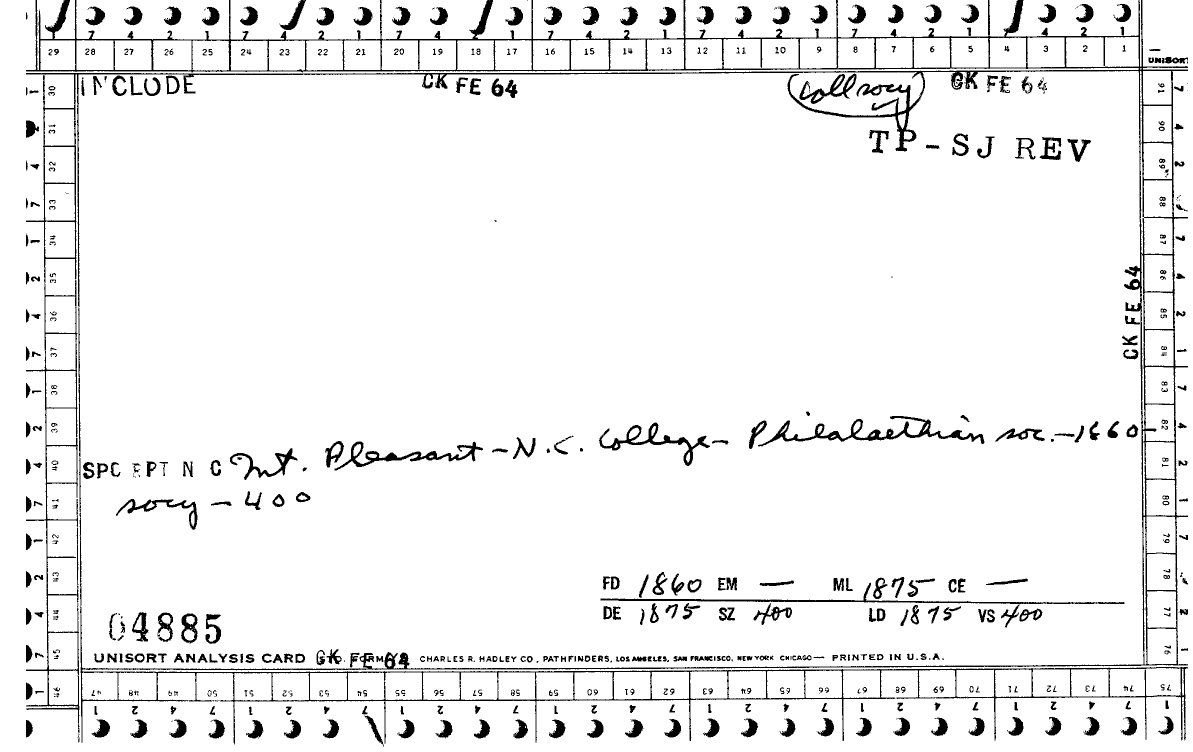 7 4 2 1 7 4 2 1 7 4 2 1 7 4 2 1 7 4 2 1 7 4 2 1 7 4 2 1
29 28 27 26 25 24 23 22 21 20 19 18 17 16 15 14 13 12 11 10 9 8 7 6 5 4 3 2 1
UNISORT
INCLUDE CK FE 64 Coll socy CK FE 64
TP-SJ REV
CK FE 64
SPC RPT N C Mt. Pleasant - N.C. College - Philalaethian soc. - 1860
socy - 400
FD 1860 EM — ML 1875 CE —
DE 1875 SZ 400 LD 1875 VS 400
04885
UNISORT ANALYSIS CARD CK FE 64 CHARLES R. HADLEY CO., PATHFINDERS, LOS ANGELES, SAN FRANCISCO, NEW YORK CHICAGO — PRINTED IN U.S.A.
30 31 32 33 34 35 36 37 38 39 40 41 42 43 44 45 46
91 90 89 88 87 86 85 84 83 82 81 80 79 78 77 76 75
47 48 49 50 51 52 53 54 55 56 57 58 59 60 61 62 63 64 65 66 67 68 69 70 71 72 73 74 75
1 2 4 7 1 2 4 7 1 2 4 7 1 2 4 7 1 2 4 7 1 2 4 7 1 2 4 7